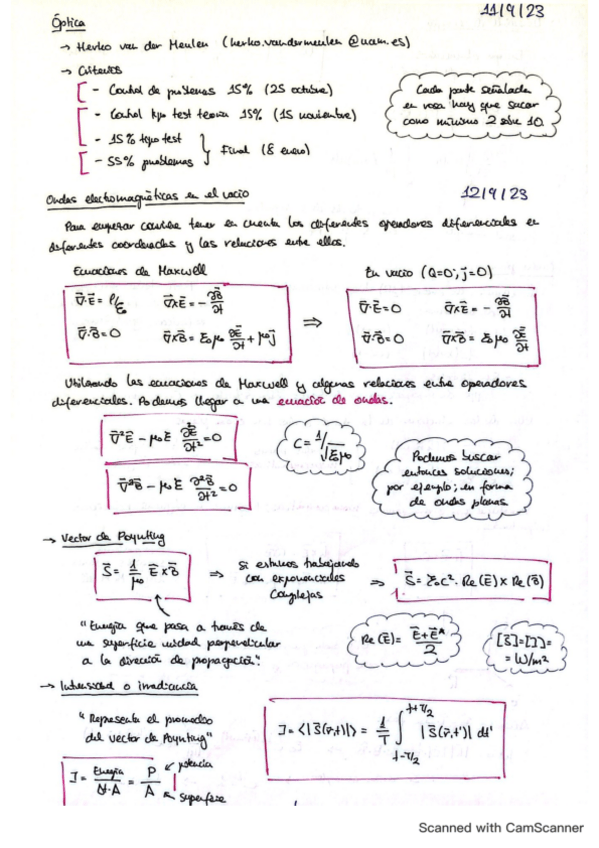 11/9/23
Óptica
→ Herko van der Meulen (herko.vandermeulen@uam.es)
→ Criterios
- Control de problemas 15% (25 octubre)
- Control tipo test teoría 15% (15 noviembre)
- 15% tipo test
- 55% problemas
} Final (8 enero)
Cada parte señalada
en rosa hay que sacar
como mínimo 2 sobre 10.
Ondas electromagnéticas en el vacío
12/9/23
Para empezar conviene tener en cuenta los diferentes operadores diferenciales en
diferentes coordenadas y las relaciones entre ellos.
Ecuaciones de Maxwell
En vacío (Q=0; j⃗=0)
∇⃗·E⃗ = ρ/ε₀   ∇⃗×E⃗ = - ∂B⃗/∂t
∇⃗·B⃗ = 0   ∇⃗×B⃗ = ε₀μ₀ ∂E⃗/∂t + μ₀ j⃗
⇒
∇⃗·E⃗ = 0   ∇⃗×E⃗ = - ∂B⃗/∂t
∇⃗·B⃗ = 0   ∇⃗×B⃗ = ε₀μ₀ ∂E⃗/∂t
Utilizando las ecuaciones de Maxwell y algunas relaciones entre operadores
diferenciales. Podemos llegar a una ecuación de ondas.
∇⃗²E⃗ - μ₀ε ∂²E⃗/∂t² = 0
∇⃗²B⃗ - μ₀ε ∂²B⃗/∂t² = 0
C = 1/√εμ₀
Podemos buscar
entonces soluciones;
por ejemplo; en forma
de ondas planas
→ Vector de Poynting
S⃗ = 1/μ₀ E⃗×B⃗
⇒ si estamos trabajando
con exponenciales
complejas
⇒ S⃗ = ε₀c²· Re(E⃗) × Re(B⃗)
"Energía que pasa a través de
una superficie unidad perpendicular
a la dirección de propagación".
Re(E⃗) = (E⃗+E⃗*)/2
[S]=[I]=
= W/m²
→ Intensidad o irradiancia
"Representa el promedio
del vector de Poynting"
I = <|S⃗(r⃗,t)|> = 1/T ∫ t-T/2 t+T/2 |S⃗(r⃗,t')| dt'
I = Energía/Δt·A = P/A
potencia
superficie
Scanned with CamScanner